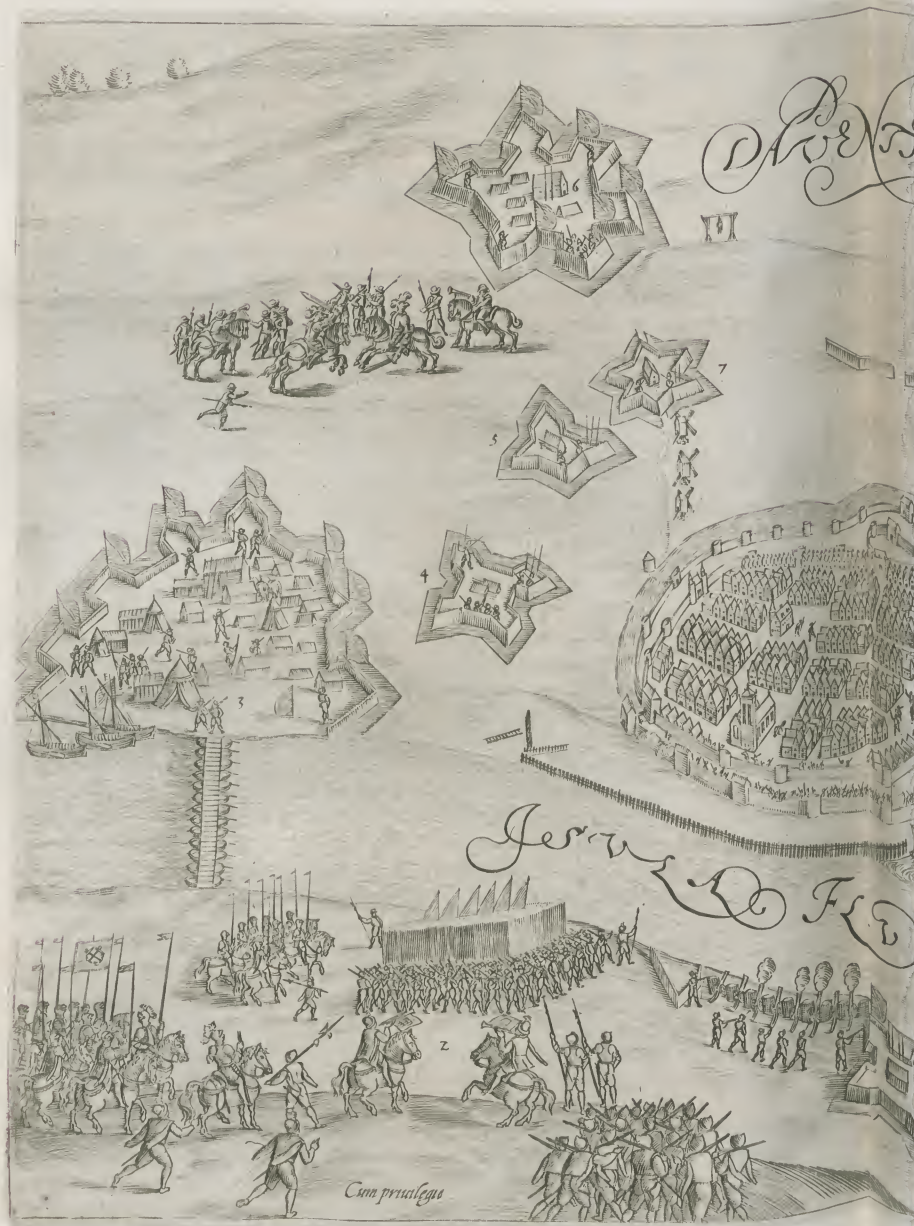 DAVENT
6
7
5
4
3
FLV
2
Cum priuilegio